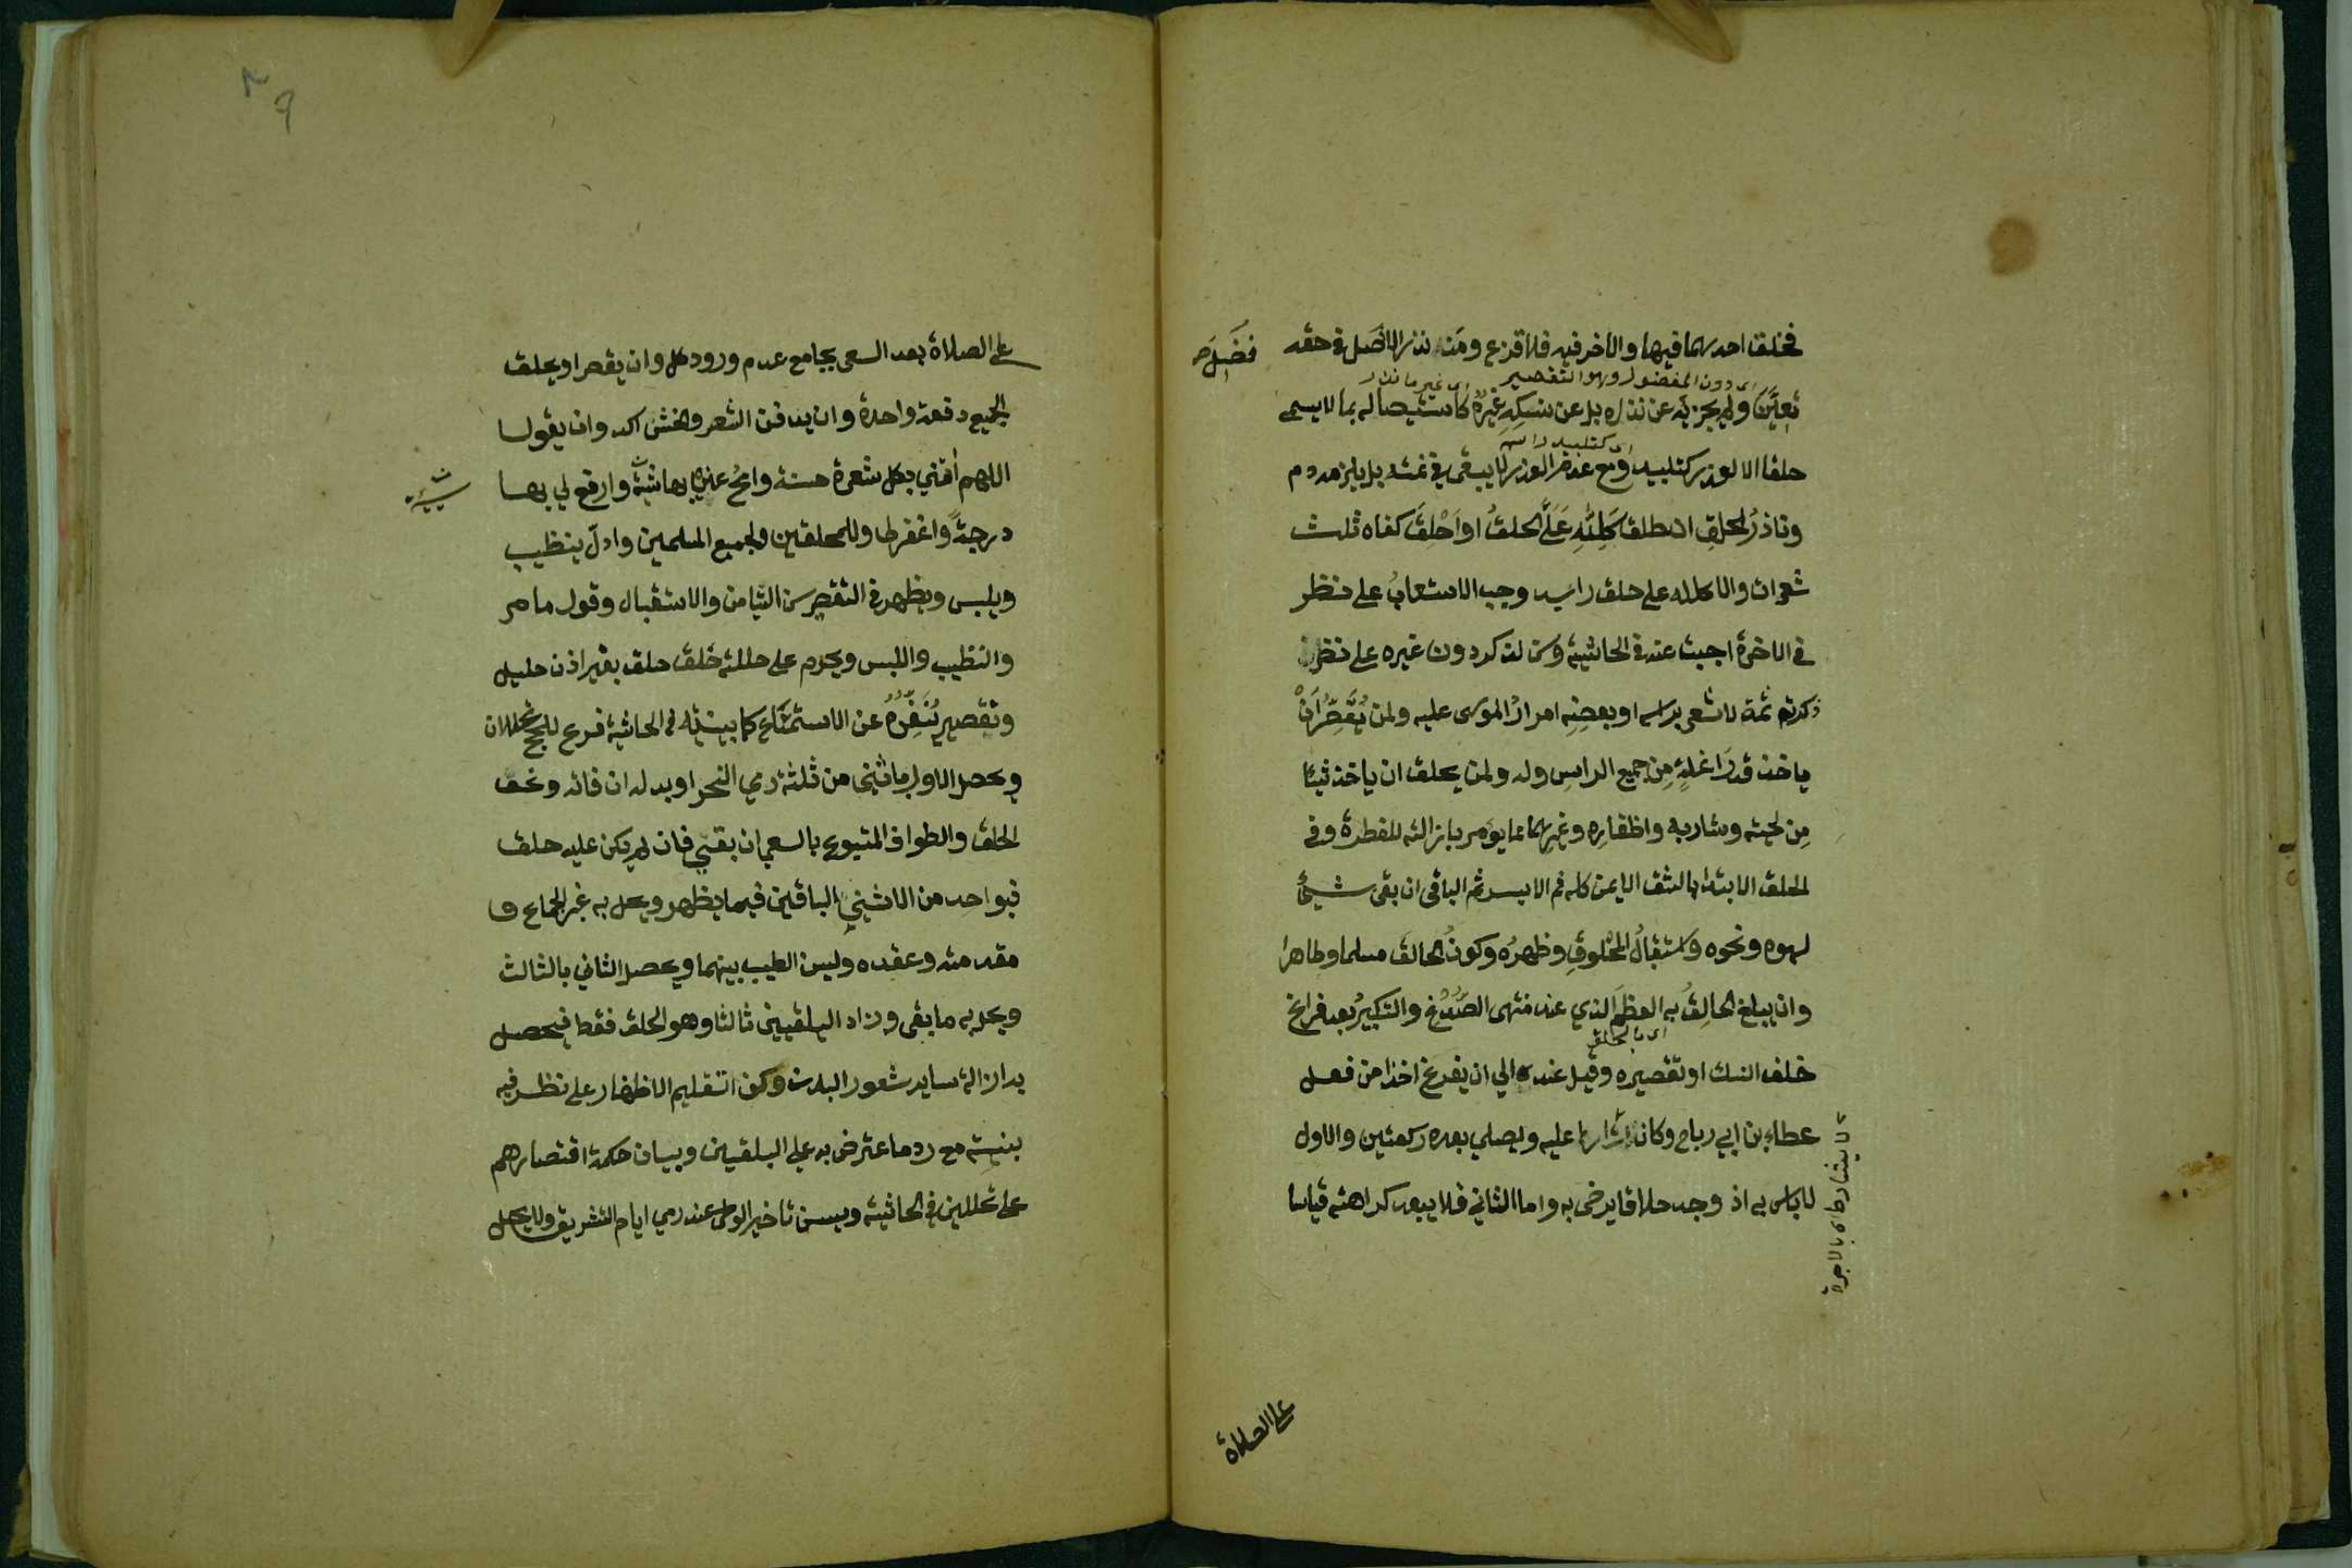 فخلق احدهما فيها والاخر فيه فلا قزع ومن نذر الافضل في حقه
فضل صح
اى دون المفضول وهو التقصير
اى غير ما نذر
تعيَّن ولم يجزيه عن نذره بل عن نسكه غيرُه كاستيصاله بما لا يسمى
اى كتلبيد راسه
حلقا الا لعذر كتلبيد ومع عدم العذر لا يبقى في ذمته بل يلزمه دم
وناذرُ الحلق ان اطلق كَلِلّهِ عَلَىَّ الحلقُ او اَحْلقَ كفاه ثلث
شعرات والا كلله على حلق راسي وجب الاستيعابُ على نظر
في الاخرة اجبت عنه في الحاشية وسن لذكر دون غيره على نظر
ذكرته ثمة لا شعر براسه او بعضِهِ امرارُ الموسى عليه ولمن يُقَصِّرُ اَنْ
ياخذ قدرَ انملةٍ مِن جميع الراسِ وله ولمن يحلق ان ياخذ شيئا
مِن لحيته وشاربه واظفارِه وغيرِهما مما يؤمر بازالته للفطرة وفي
الحلق الابتدا بالشق الايمن كله ثم الايسر ثم الباقي ان بقى شيئٌ
لسهوه ونحوه واستقبالُ المحْلوقِ وطهرُه وكونُ الحالق مسلما وطاهرا
وان يبلغ الحالِقُ به العظمَ الذي عند منتهى الصُّدْغ والتكبيرُ بعد فراغ
اى بالحلق
حلق النسك او تقصيره وقيل عنده الي ان يفرغ اخذا من فعل
عطاء بن ابي رباح وكان اشارط عليه ويصلي بعده ركعتين والاول
لا باس به اذ وجد حلاقا يرضى به واما الثاني فلا يبعد كراهته قياسا
لا يشارط اى بالاجرة
على الصلاة
على الصلاة بعد السعى بجامع عدم ورود كل وان يقصر او يحلق
الجميع دفعة واحدة وان يدفن الشعر والحسن اكد وان يقول
اللهم اٰتني بكل شعرة حسنة وامحُ عني بها سيئة وارفع لي بها
سيئة
درجةً واغفر لي وللمحلقين ولجميع المسلمين وان يتطيب
ويلبس ويظهر في التقصير سن التيامن والاستقبال وقول ما مر
والتطيب واللبس ويحرم على حليلة حلق بغير اذن حليل
وتقصير يُنَفِّرُهُ عن الاستمتاع كما بينته في الحاشية فرع للحج تحللان
ويحصل الاول باثنين من ثلثة رمي النحر او بدله ان فاته ونحو
الحلق والطواف المتبوع بالسعي ان بقي فان لم يكن عليه حلق
فبواحد من الاثنين الباقين فيما يظهر ويحل به غير الجماع و
مقدمته وعقده وليس الطيب بينهما ويحصل الثاني بالثالث
ويحل به ما بقى وزاد البلقيني ثالثا وهو الحلق فقط فيحصل
به ازالة ساير شعور البدن وكذا تقليم الاظفار على نظر فيه
بنيته مع رد ما اعترض به على البلقيني وبيان حكمة اقتصارهم
على تحللين في الحاشية ويسن تاخير الوطى عند رمي ايام التشريق ولا يحل